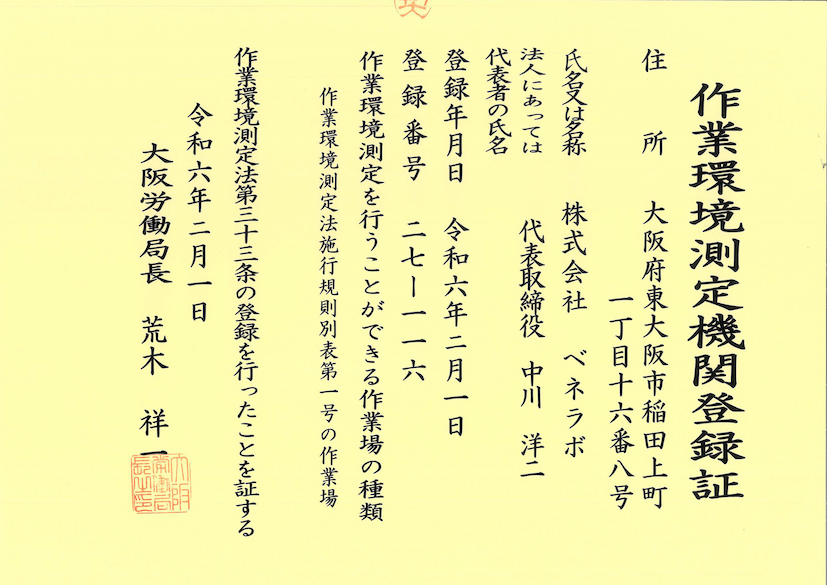 作業環境測定機関登録証
住所 大阪府東大阪市稲田上町
一丁目十六番八号
氏名又は名称 株式会社 ベネラボ
法人にあっては
代表者の氏名 代表取締役 中川 洋二
登録年月日 令和六年二月一日
登録番号 二七ー一一六
作業環境測定を行うことができる作業場の種類
作業環境測定法施行規則別表第一号の作業場
作業環境測定法第三十三条の登録を行ったことを証する
令和六年二月一日
大阪労働局長 荒木 祥一
大阪
労働局
長之印